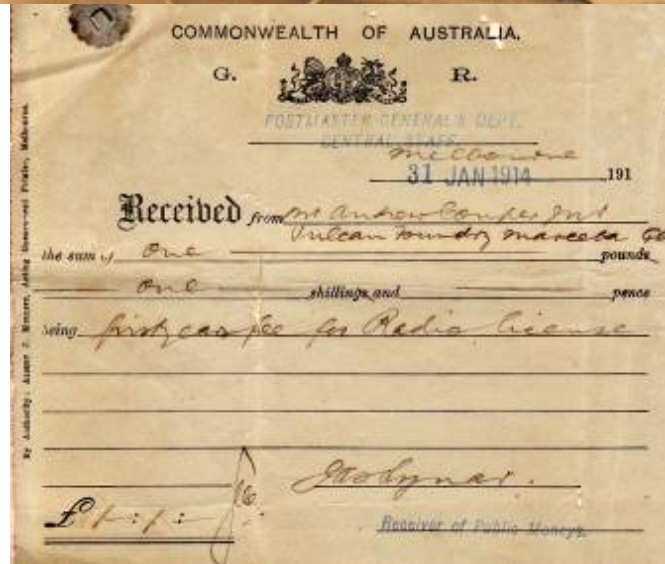 COMMONWEALTH OF AUSTRALIA.
G. R.
POSTMASTER GENERAL'S DEPT.
CENTRAL STAFF
Melbourne
31 JAN 1914 191
Received from Mr Andrew Couper Jnr
Vulcan Foundry Mareeba
the sum of one pounds
one shillings and pence
being first years fee for Radio license
£1:1:
Receiver of Public Moneys.
By Authority: Albert J. Mullett, Acting Government Printer, Melbourne.